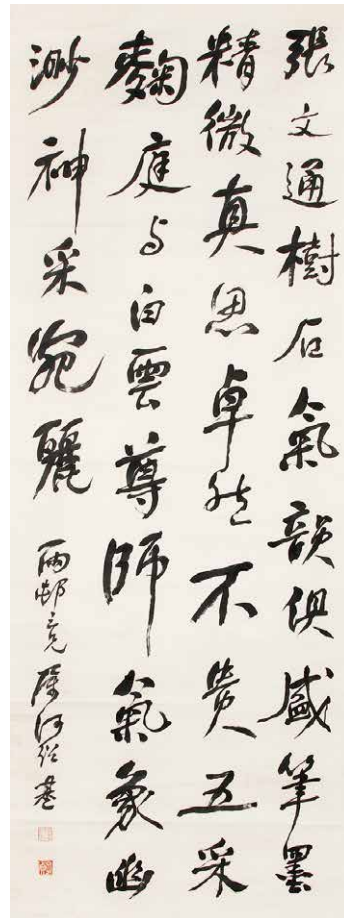 張文通樹石氣韻俱盛筆墨
精微真思卓然不貴五采
麴庭与白雲尊師氣象幽
渺神采宛麗
雨邨三兄屬何紹基